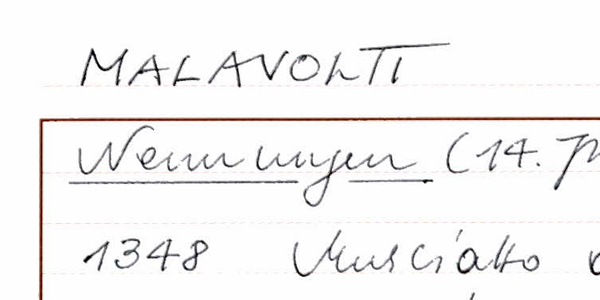 MALAVOLTI
Nennungen (14. Jh
1348 Musciatto